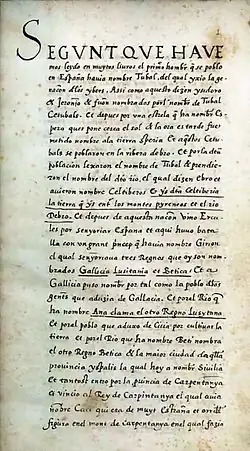 SEGVNT QVE HAVE
mos leydo en muytos liuros el primo hombr q̃ se poblo
en España hauia nombre Tubal, del qual yxio la ge-
nacion dlos ybers. Assi como aquesto dizen ysidoro
& Jeronio & fuon nombrados porl nomb̃ de Tubal
Cetubals. Et depues por una estrela q̃ ha nomb̃ Es-
pera ques pone cerca el sol & la ora es tarde fue
metido nombre ala tierra Speria Et aq̃stos Cetu-
bals se poblaron en la ribera debro. Et por la dita
poblacion lexaron el nombre de Tubal & prendie-
ron el nombre del dito rio, el qual dizen Ebro &
auieron nombre Celtiberos & ys dita Celtiberia
la tierra q̃ ys ent los montes pyreneos & el rio
Debro. Et depues de aquesta nacion vino Ercu-
les por senyoriar España et aqui huuo bata-
lla con un grant princep q̃ hauia nombre Girion
el qual senyoreaua tres Regnos que oy son nom-
brados Gallicia Lusitania et Betica. Et a
Gallicia puso nombre por tal como la poblo dlas
gents que adixia de Gallacia. Et porel Rio q̃
ha nombre Ana clama el otro Regno Lusytania
et porel poblo que aduxo de por cultiuar la
tierra et porel Rio que ha nombre Beti nombra
el otro Regno Betica & la maior ciudad de aq̃lla
prouincia yspalis la qual hoy a nomb̃ Siuilia
et tantost entro por la puincia de Carpentanya
& vincio al Rey de Carpintanya el qual auia
nobre Caci qui era de muy Estraña et orribl
figura en el mont de Carpentanya en el qual fazia